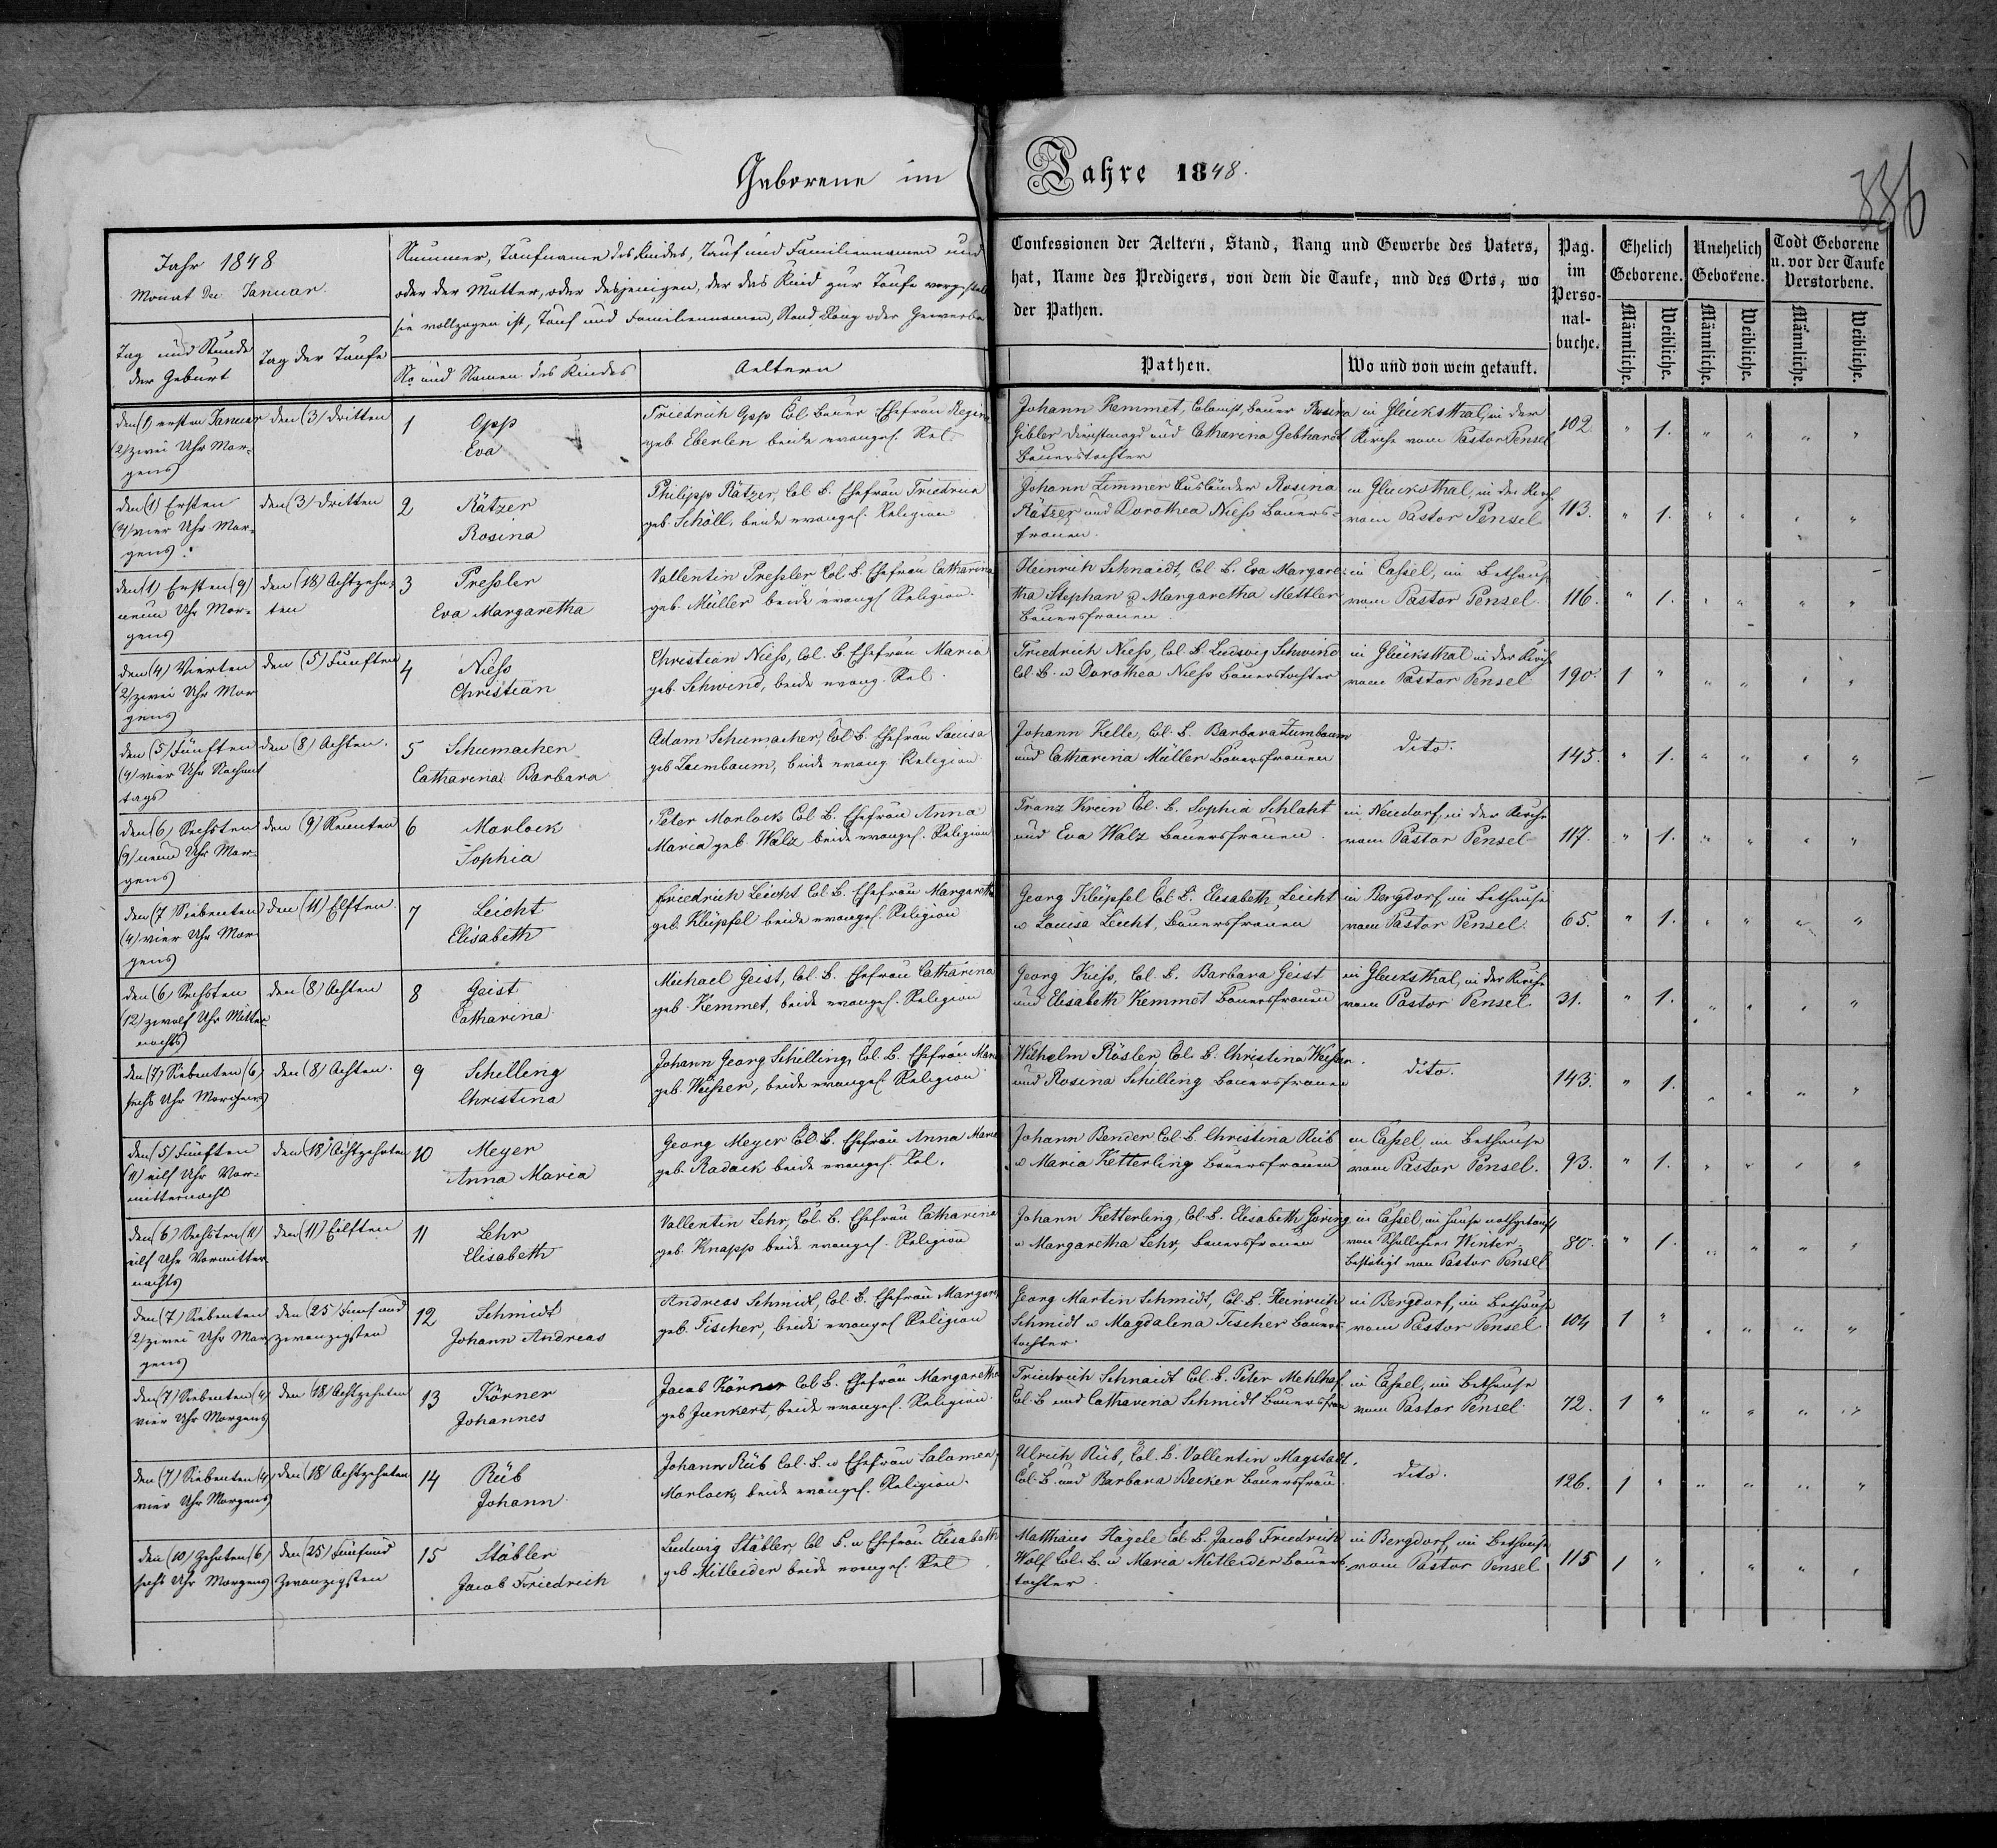 Geborene im Jahre 1848.
336
Jahr 1848
Monat Januar
Tag und Stunde
der Geburt
Tag der Taufe
Nummer, Taufname des Kindes, Tauf und Familiennamen und
oder der Mutter, oder desjenigen, der das Kind zur Taufe
sie vollzogen ist, Tauf und Familiennamen, Stand, Rang oder Gewerbe
No und Namen des Kindes
Aeltern
Confessionen der Aeltern, Stand, Rang und Gewerbe des Vaters,
hat, Name des Predigers, von dem die Taufe, und des Orts, wo
der Pathen.
Pathen.
Wo und von wem getauft.
Pag.
im
Perso-
nal-
buche.
Ehelich
Geborene.
Unehelich
Geborene.
Todt Geborene
u. vor der Taufe
Verstorbene.
Männliche.
Weibliche.
Männliche.
Weibliche.
Männliche.
Weibliche.
den (1) ersten Januar
(2) zwei Uhr Mor-
gens
den (3) dritten
1 Opp
Eva
Friedrich Opp Col. Bauer Ehefrau
geb. Eberlen beide evangel. Rel.
Johann Kemmet, Colonist, Bauer Rosina
Gibler Dienstmagd und Catharina Gebhardt
Bauerstochter
in Glücksthal, in der
Kirche vom Pastor Pensel
102 " 1. " " " "
den (1) Ersten
(4) vier Uhr Mor-
gens.
den (3) dritten
2 Rätzer
Rosina
Philipp Rätzer, Col. B. Ehefrau
geb. Schöll, beide evangel. Religion
Johann Zimmer Ausländer Rosina
Rätzer und Dorothea Niess Bauers-
frauen.
in Glücksthal, in der
vom Pastor Pensel
113. " 1. " " " "
den (1) Ersten (9)
neun Uhr Mor-
gens
den (18) Achtzehn-
ten
3 Pressler
Eva Margaretha
Vallentin Pressler Col. B. Ehefrau Catharina
geb. Müller beide evangl. Religion.
Heinrich Schnaidt, Col. B. Eva Margare-
tha Stephan u Margaretha Mettler
Bauersfrauen
in Cassel, im Bethaus
vom Pastor Pensel.
116. " 1. " " " "
den (4) Vierten
(2) zwei Uhr Mor
gens
den (5) Fünften
4 Niess
Christian
Christian Niess, Col. B. Ehefrau Maria
geb. Schwind, beide evang. Rel.
Friedrich Niess, Col. B. Ludwig Schwind
Col. B. u Dorothea Niess Bauerstochter
in Glücksthal in der
vom Pastor Pensel
190. 1 " " " " "
den (5) Fünften
(4) vier Uhr Nachmit
tags
den (8) Achten.
5 Schumacher
Catharina Barbara
Adam Schumacher, Col. B. Ehefrau Louisa
geb. Zumbaum, beide evang. Religion
Johann Kelle, Col. B. Barbara Zumbaum
und Catharina Müller Bauersfrauen
dito.
145. " 1. " " " "
den (6) Sechsten
(9) neun Uhr Mor-
gens
den (9) Neunten
6 Morlock
Sophia
Peter Morlock Col. B. Ehefrau Anna
Maria geb. Walz beide evangel. Religion
Franz Krein Col. B. Sophia Schlaht
und Eva Walz Bauersfrauen.
in Neudorf, in der Kirche
vom Pastor Pensel
117. " 1. " " " "
den (7) Siebenten
(4) vier Uhr Mor-
gens
den (11) Elften.
7 Leicht
Elisabeth
Friedrich Leicht Col. B. Ehefrau Margaretha
geb. Klüpfel beide evangel. Religion
Georg Klüpfel Col. B. Elisabeth Leicht
u Louisa Leicht, Bauersfrauen
in Bergdorf, im Bethause
vom Pastor Pensel.
65. " 1. " " " "
den (6) Sechsten
(12) zwölf Uhr Mitter-
nachts
den (8) Achten
8 Geist
Catharina
Michael Geist, Col. B. Ehefrau Catharina
geb. Kemmet, beide evangel. Religion
Georg Kiess, Col. B. Barbara Geist
und Elisabeth Kemmet Bauersfrauen
in Glücksthal, in der Kirche
vom Pastor Pensel
31. " 1. " " " "
den (7) Siebenten (6)
sechs Uhr Morgens
den (8) Achten.
9 Schilling
Christina
Johann Georg Schilling, Col. B. Ehefrau
beide evangel. Religion
Wilhelm Rösler Col. B. Christina
und Rosina Schilling Bauersfrauen
dito.
143. " 1. " " " "
den (5) Fünften
(11) eilf Uhr Vor-
mitternacht
den (18) Achtzehnten
10 Meyer
Anna Maria
Georg Meyer Col. B. Ehefrau Anna Maria
geb. Radack beide evangel. Rel.
Johann Bender Col. B. Christina Rüb
u Maria Ketterling Bauersfrauen
in Cassel, im Bethause
vom Pastor Pensel.
93. " 1. " " " "
den (6) Sechsten (11)
eilf Uhr Vormitter-
nachts
den (11) Eilften
11 Lehr
Elisabeth
Vallentin Lehr, Col. B. Ehefrau Catharina
geb. Knapp beide evangel. Religion
Johann Ketterling, Col. B. Elisabeth Göring
u Margaretha Lehr, Bauersfrauen
in Cassel, im Hause nothgetauft
vom Schullehrer Winter,
bestätigt vom Pastor Pensel
80. " 1. " " " "
den (7) Siebenten
(2) zwei Uhr Mor-
gens
den (25) Fünf und
zwanzigsten
12 Schmidt
Johann Andreas
Andreas Schmidt, Col. B. Ehefrau
geb. Fischer, beide evangel. Religion
Georg Martin Schmidt, Col. B. Heinrich
Schmidt u Magdalena Fischer Bauers-
tochter.
in Bergdorf, im Bethause
vom Pastor Pensel
104 1 " " " " "
den (7) Siebenten (4)
vier Uhr Morgens
den (18) Achtzehnten
13 Körner
Johannes
Jacob Körner Col. B. Ehefrau Margaretha
geb. Junkert, beide evangel. Religion.
Friedrich Schnaidt Col. B. Peter Mehlhaf
Col. B. und Catharina Schmidt Bauersfrau
in Cassel, im Bethause
vom Pastor Pensel
72. 1 " " " " "
den (7) Siebenten (4)
vier Uhr Morgens
den (18) Achtzehnten
14 Rüb
Johann
Johann Rüb Col. B. u Ehefrau
Morlock, beide evangel. Religion.
Ulrich Rüb, Col. B. Vallentin Magstadt,
Col. B. und Barbara Becker Bauersfrau
dito.
126. 1 " " " " "
den (10) Zehnten (6)
sechs Uhr Morgens
den (25) Fünf und
Zwanzigsten
15 Stäbler
Jacob Friedrich
Ludwig Stäbler, Col. B. u Ehefrau Elisabeth
geb. Mitleider beide evangel. Rel.
Matthäus Hägele Col. B. Jacob Friedrich
Wolf Col. B. u Maria Mitleider Bauers
tochter.
in Bergdorf, im Bethause
vom Pastor Pensel
115 1 " " " " "